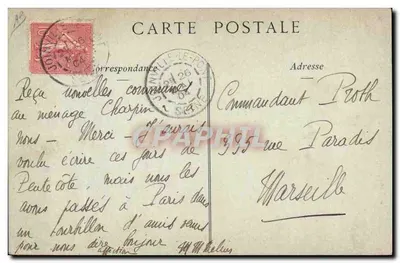 CARTE POSTALE
Correspondance
Adresse
Reçu nouvelles communes
au ménage Charpin
nous - Merci - J'aurais
voulu écrire ces jours de
Pentecôte, mais nous les
avons passés à Paris dans
un tourbillon d'amis venus
pour nous dire bonjour
Commandant Proth
395 rue Paradis
Marseille